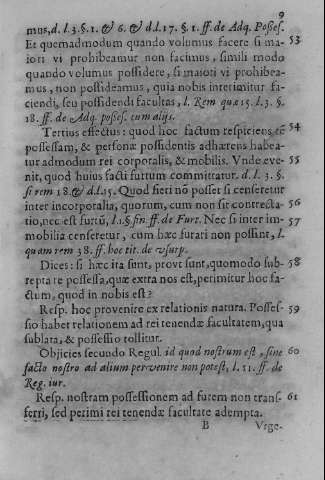 9
mus, d. l. 3. §. 1. & 6. & d. l. 17. §. 1. ff. de Adq. Posses.
Et quemadmodum quando volumus facere si ma- 53
iori vi prohibeamur non facimus, simili modo
quando volumus possidere, si maiori vi prohibea-
mur, non possideamus, quia nobis interimitur fa-
ciendi, seu possidendi facultas, l. Rem quæ 15. l. 3. §.
18. ff. de Adq. posses. cum alijs.
Tertius effectus: quod hoc factum respiciens rē 54
possessam, & personæ possidentis adhærens habea-
tur admodum rei corporalis, & mobilis. Vnde eve- 55
nit, quod huius facti furtum committatur. d. l. 3. §.
si rem 18. & d. l. 15. Quod fieri nõ posset si censeretur
inter incorporalia, quorum, cum non sit contrecta- 56
tio, nec est furtũ, l. 1. §. fin. ff. de Furt. Nec si inter im- 57
mobilia censeretur, cum hæc furari non possint, l.
quam rem 38. ff. hoc tit. de vsurp.
Dices: si hæc ita sunt, provt sunt, quomodo sub- 58
repta re possessa, quæ extra nos est, perimitur hoc fa-
ctum, quod in nobis est?
Resp. hoc provenire ex relationis natura. Posses- 59
sio habet relationem ad rei tenendæ facultatem, qua
sublata, & possessio tollitur.
Objicies secundo Regul. id quod nostrum est, sine 60
facto nostro ad alium pervenire non potest, l. 11. ff. de
Reg. iur.
Resp. nostram possessionem ad furem non trans- 61
ferri, sed perimi rei tenendæ facultate adempta.
B Vrge-